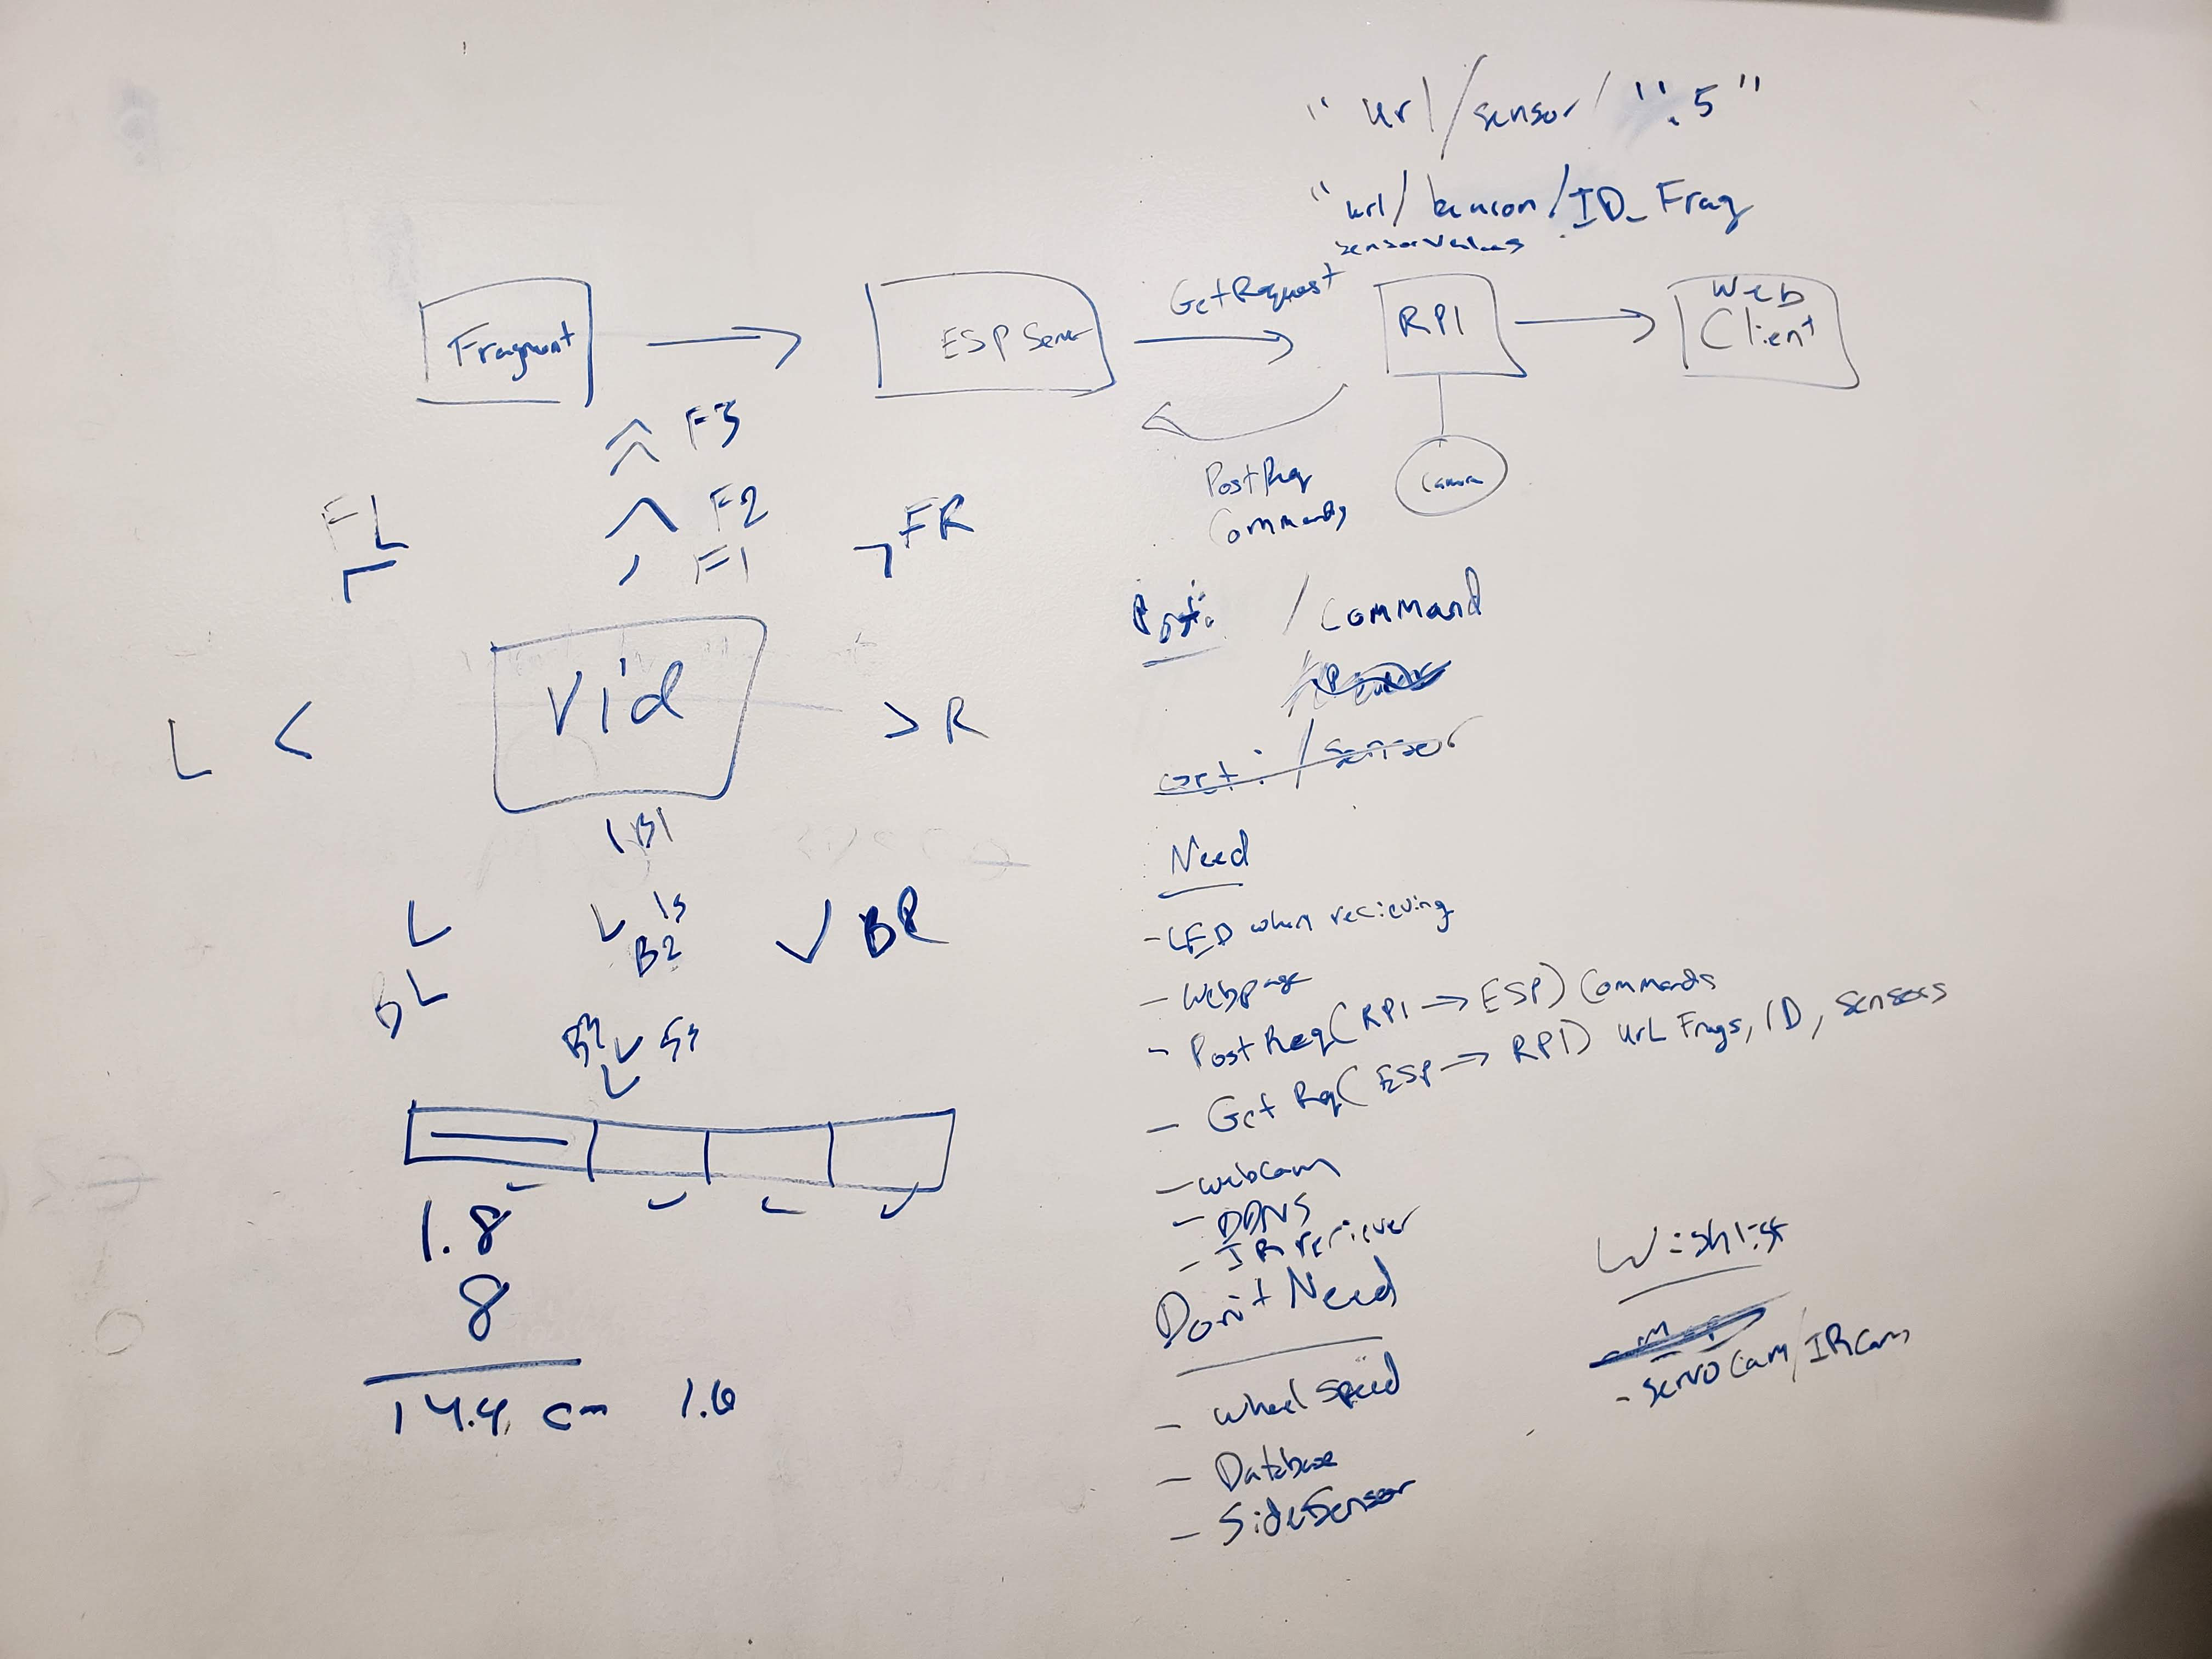 " url/sensor/ ":5"
"url/beacon/ID_Frag
sensorvalues
Fragment
ESP Server
GetRequest
RPI
Web
Client
Camera
PostReq
Commands
F3
F2
F1
FL
FR
Vid
L <
> R
B1
1s
B2
BL
BR
5s
1.8
8
14.4 cm 1.6
Post: /Command
/sensor
Need
- LED when recieving
- Webpage
- PostReq(RPI → ESP) Commands
- Get Req(ESP → RPI) url Frags, ID, sensors
- webcam
- DDNS
- IR reciever
Don't Need
- Wheel speed
- Database
- SideSensor
Wishlist
- servo cam/IRcam